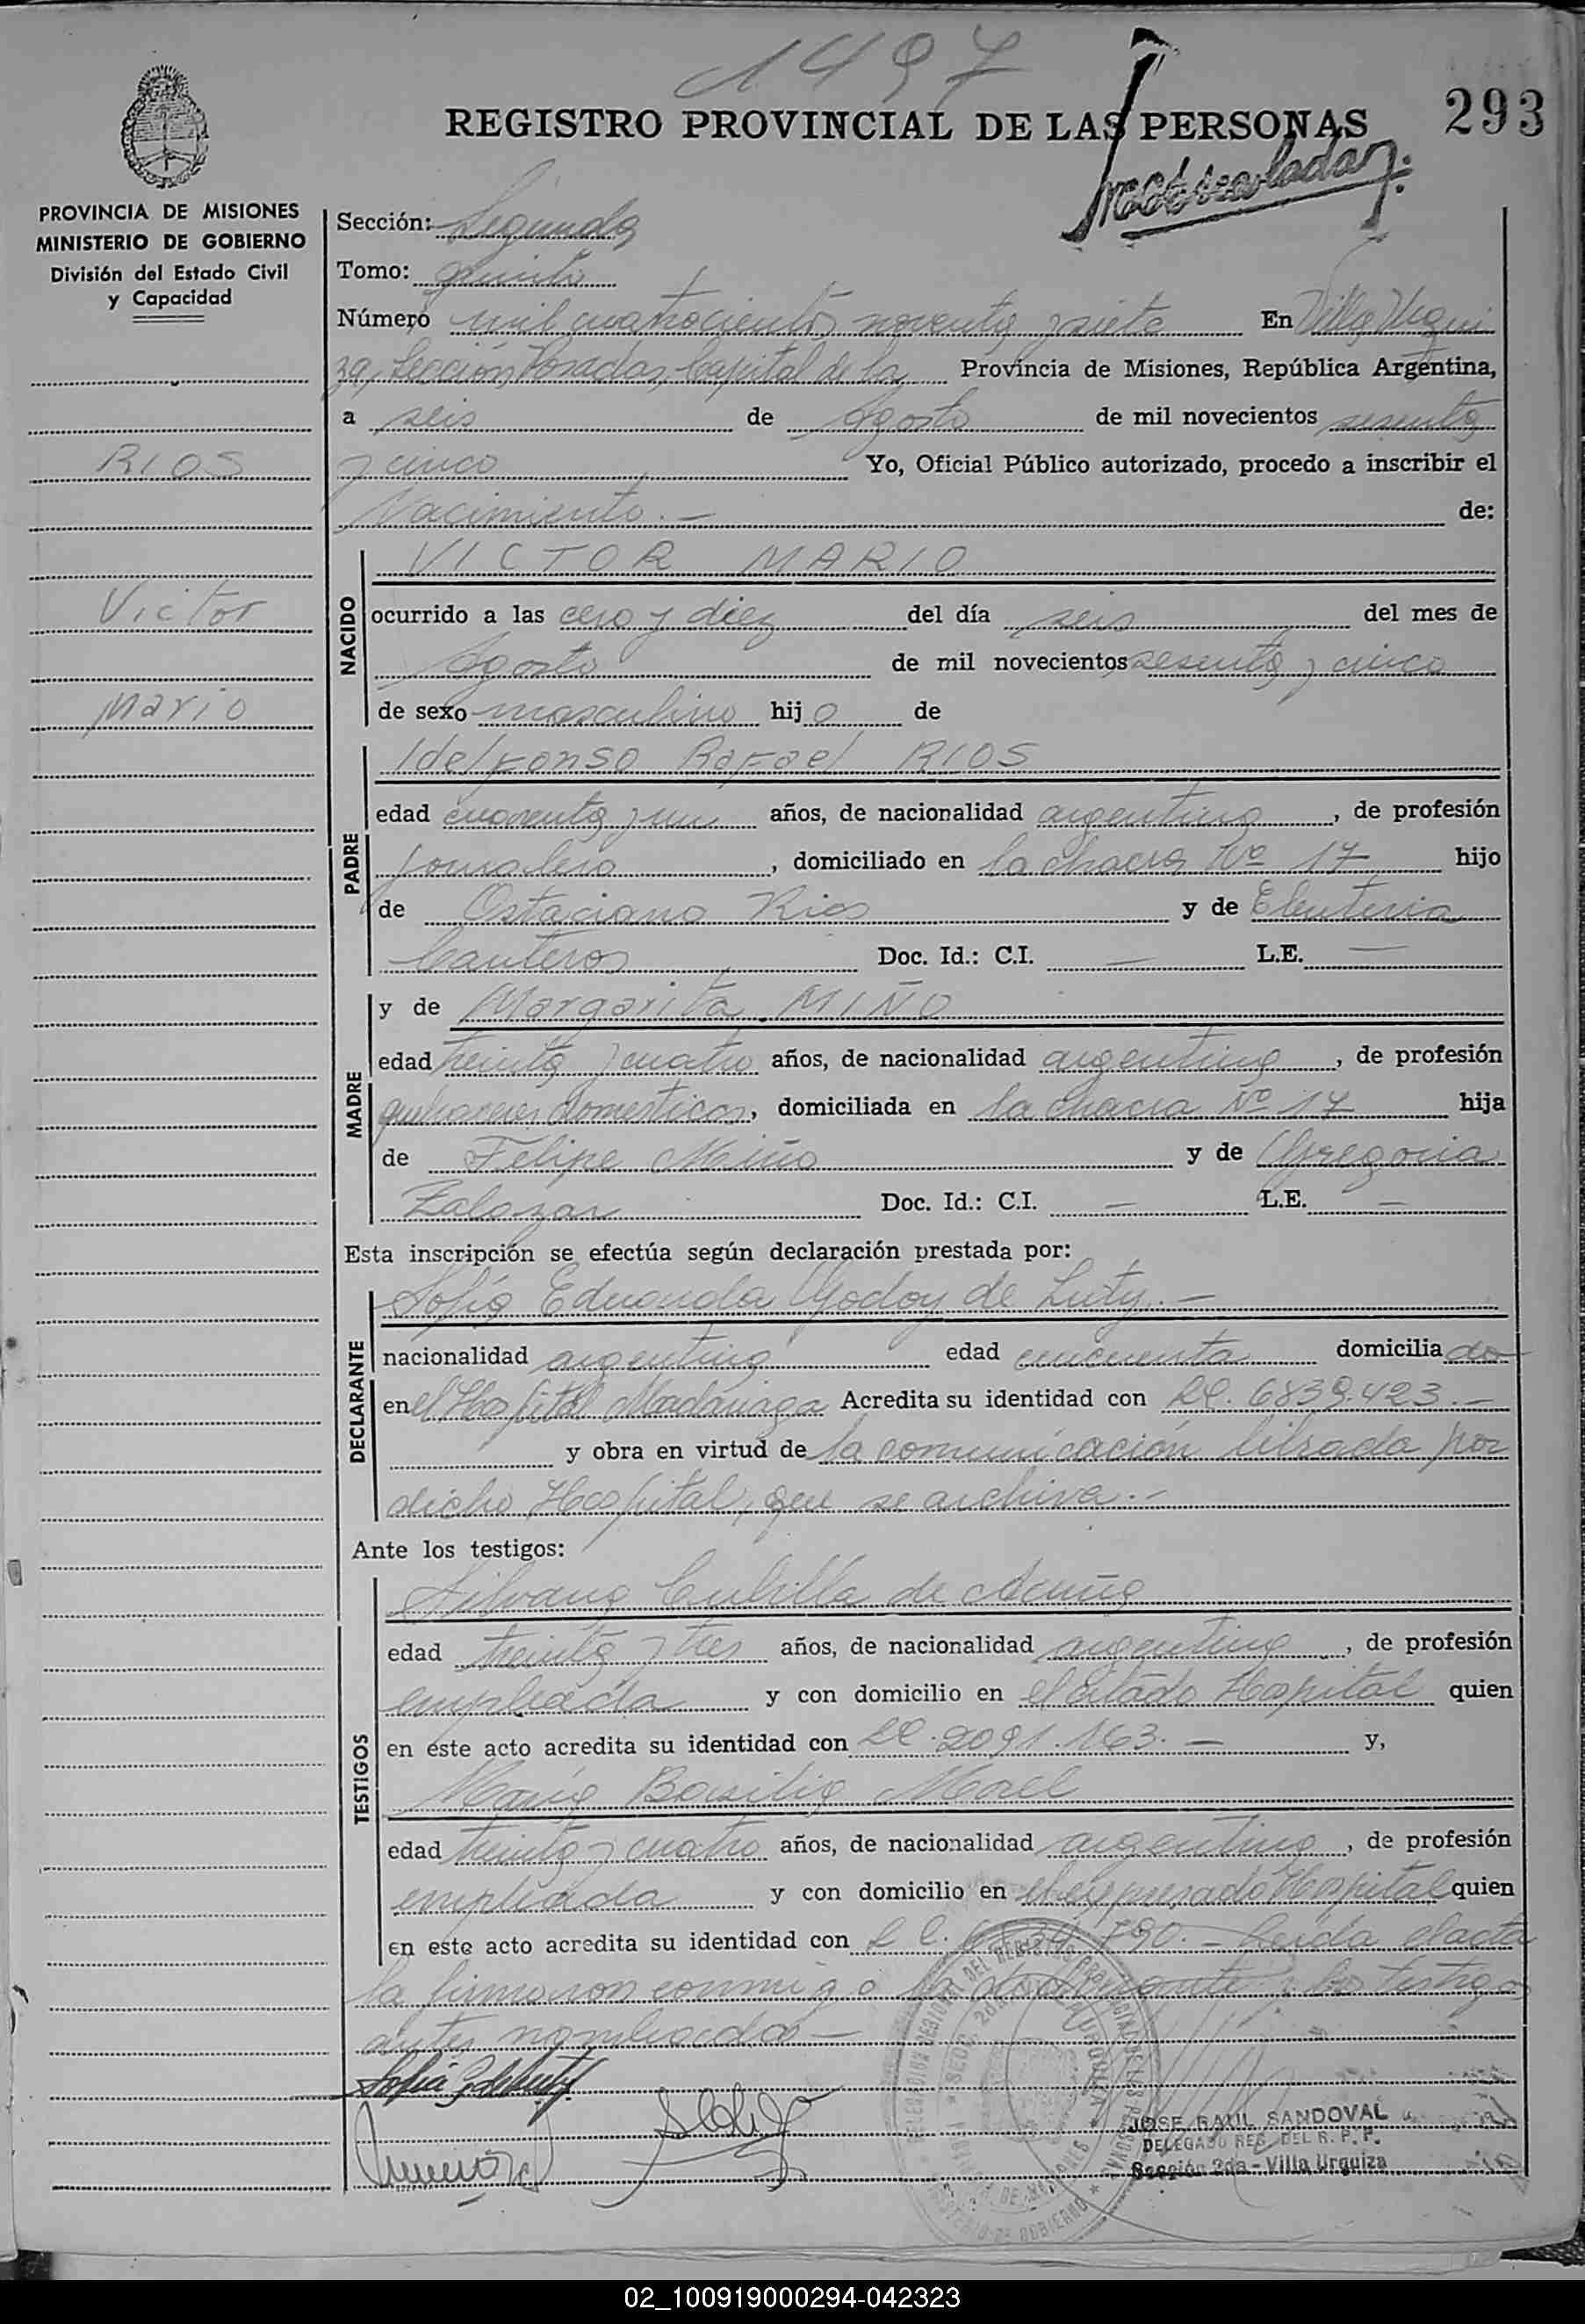 1497
REGISTRO PROVINCIAL DE LAS PERSONAS
293
PROVINCIA DE MISIONES
MINISTERIO DE GOBIERNO
División del Estado Civil
y Capacidad
RIOS
Victor
Mario
Sección: Segunda
Tomo: quinto
Número mil cuatrocientos noventa y siete En Villa Urqui
za, Sección Posadas, Capital de la Provincia de Misiones, República Argentina,
a seis de Agosto de mil novecientos sesenta
y cinco Yo, Oficial Público autorizado, procedo a inscribir el
Nacimiento.— de:
NACIDO
VICTOR MARIO
ocurrido a las cero y diez del día seis del mes de
Agosto de mil novecientos sesenta y cinco
de sexo masculino hijo de
PADRE
Idelfonso Rafael RIOS
edad cuarenta y un años, de nacionalidad argentina, de profesión
jornalero, domiciliado en la chacra Nº 17 hijo
de Ostaciano Rios y de Eleuteria
Canteros Doc. Id.: C.I. — L.E. —
MADRE
y de Margarita MIÑO
edad treinta y cuatro años, de nacionalidad argentina, de profesión
quehaceres domesticos, domiciliada en la chacra Nº 17 hija
de Felipe Miño y de Gregoria
Zalazar Doc. Id.: C.I. — L.E. —
Esta inscripción se efectúa según declaración prestada por:
DECLARANTE
Sofia Eduarda Godoy de Luty.—
nacionalidad argentina edad cincuenta domiciliado
en el Hospital Madariaga Acredita su identidad con LC. 6839.423.—
y obra en virtud de la comunicación librada por
dicho Hospital, que se archiva.-
Ante los testigos:
TESTIGOS
Silvana Cubilla de Acuña
edad treinta y tres años, de nacionalidad argentina, de profesión
empleada y con domicilio en el citado Hospital quien
en este acto acredita su identidad con LC. 2091.163.— y,
Maria Basilia
edad treinta y cuatro años, de nacionalidad argentina, de profesión
empleada y con domicilio en el expresado Hospital quien
en este acto acredita su identidad con L C. 790.— Leída el acta
la firmaron conmigo la declarante y los testigos
antes nombrados—
JOSE RAUL SANDOVAL
DELEGADO REG. DEL R. P. P.
Sección 2da - Villa Urquiza
02_100919000294-042323